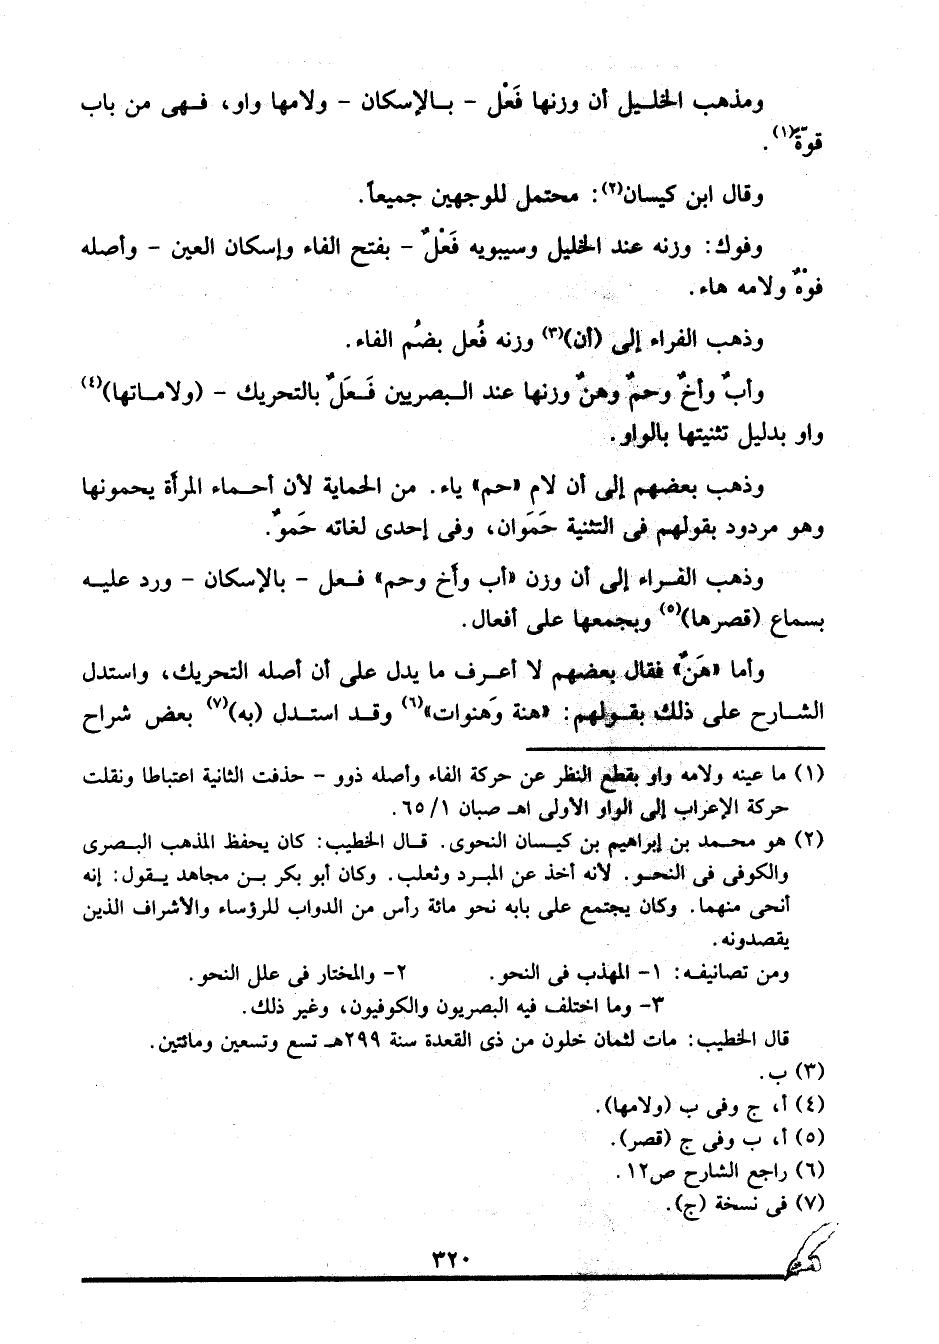 ومذهب الخليل أن وزنها فَعْل - بالإسكان - ولامها واو، فهى من باب
قوّة(١).
وقال ابن كيسان(٢): محتمل للوجهين جميعاً.
وفوك: وزنه عند الخليل وسيبويه فَعْلٌ - بفتح الفاء وإسكان العين - وأصله
فوْهٌ ولامه هاء.
وذهب الفراء إلى (أن)(٣) وزنه فُعل بضُم الفاء.
وأبٌ وأخٌ وحمٌ وهنٌ وزنها عند البصريين فَعَلٌ بالتحريك - (ولاماتها)(٤)
واو بدليل تثنيتها بالواو.
وذهب بعضهم إلى أن لام «حم» ياء. من الحماية لأن أحماء المرأة يحمونها
وهو مردود بقولهم فى التثنية حَمَوان، وفى إحدى لغاته حَموٌ.
وذهب الفراء إلى أن وزن «أب وأَخ وحم» فعل - بالإسكان - ورد عليه
بسماع (قصرها)(٥) وبجمعها على أفعال.
وأما «هَنٌ» فقال بعضهم لا أعرف ما يدل على أن أصله التحريك، واستدل
الشارح على ذلك بقولهم: «هنة وَهنوات»(٦) وقد استدل (به)(٧) بعض شراح
(١) ما عينه ولامه واو بقطع النظر عن حركة الفاء وأصله ذوو - حذفت الثانية اعتباطا ونقلت
حركة الإعراب إلى الواو الأولى اهـ صبان ١/ ٦٥.
(٢) هو محمد بن إبراهيم بن كيسان النحوى. قال الخطيب: كان يحفظ المذهب البصرى
والكوفى فى النحو. لأنه أخذ عن المبرد وثعلب. وكان أبو بكر بن مجاهد يقول: إنه
أنحى منهما. وكان يجتمع على بابه نحو مائة رأس من الدواب للرؤساء والأشراف الذين
يقصدونه.
ومن تصانيفه: ١- المهذب فى النحو. ٢- والمختار فى علل النحو.
٣- وما اختلف فيه البصريون والكوفيون، وغير ذلك.
قال الخطيب: مات لثمان خلون من ذى القعدة سنة ٢٩٩هـ تسع وتسعين ومائتين.
(٣) ب.
(٤) أ، ج وفى ب (ولامها).
(٥) أ، ب وفى ج (قصر).
(٦) راجع الشارح ص١٢.
(٧) فى نسخة (ج).
٣٢٠